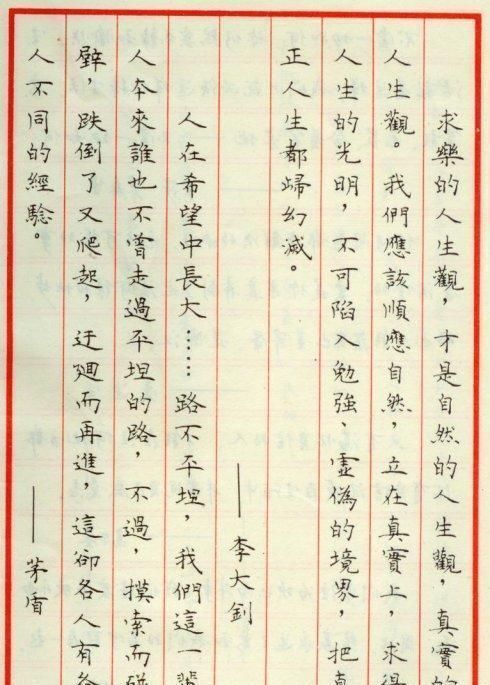 求樂的人生觀，才是自然的人生觀，真實的
人生觀。我們應該順應自然，立在真實上，求得
人生的光明，不可陷勉強、虛僞的境界，把真
正人生都歸幻滅。
——李大釗
人在希望中長大……路不平坦，我們這一輩
人本來誰也不曾走過平坦的路，不過，摸索而碰
壁，跌倒了又爬起，迂迴而再進，這卻各人有各
人不同的經驗。 ——茅盾